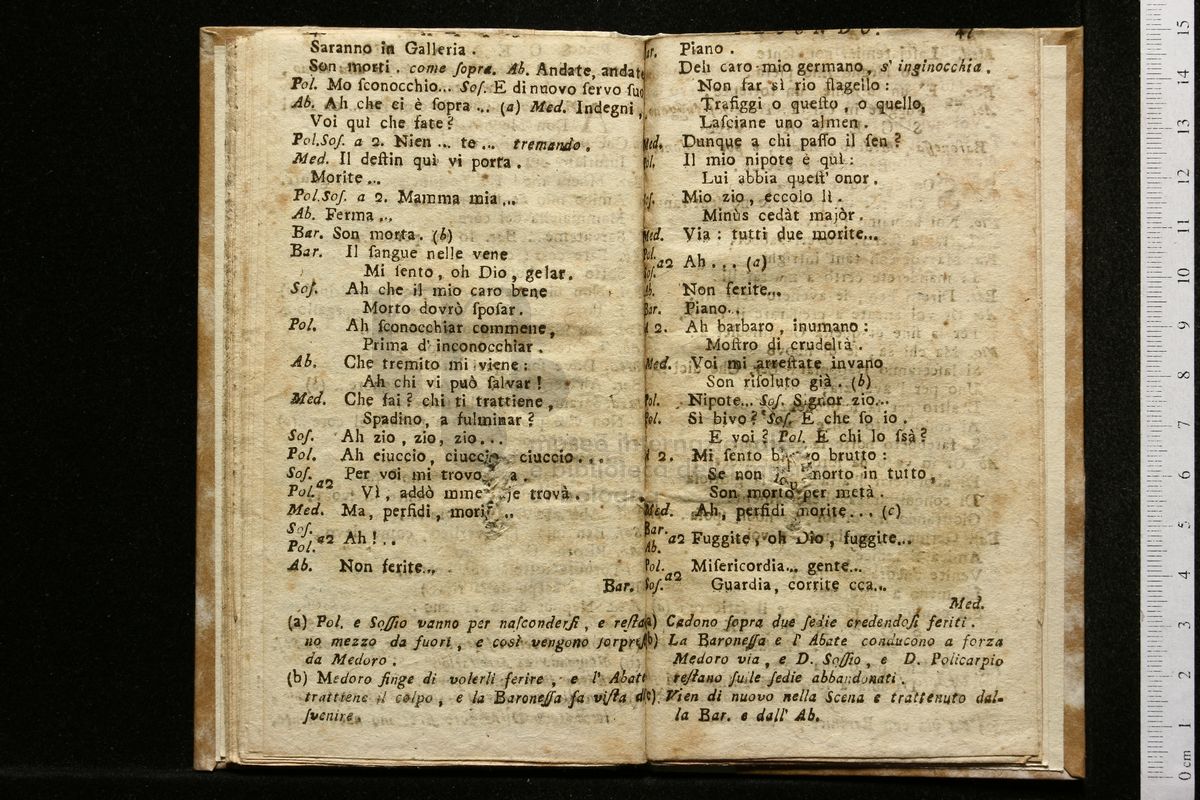 Saranno in Galleria.
Son morti. come ſopra. Ab. Andate, andate
Pol. Mo ſconocchio... Soſ. E di nuovo ſervo ſuo
Ab. Ah che ci è ſopra... (a) Med. Indegni,
Voi quì che fate?
Pol.Soſ. a 2. Nien... te... tremando.
Med. Il deſtin quì vi porta.
Morite...
Pol.Soſ. a 2. Mamma mia...
Ab. Ferma...
Bar. Son morta. (b)
Bar. Il ſangue nelle vene
Mi ſento, oh Dio, gelar.
Soſ. Ah che il mio caro bene
Morto dovrò ſpoſar.
Pol. Ah ſconocchiar commene,
Prima d' inconocchiar.
Ab. Che tremito mi viene:
Ah chi vi può ſalvar!
Med. Che fai? chi ti trattiene,
Spadino, a fulminar?
Soſ. Ah zio, zio, zio...
Pol. Ah ciuccio, ciuccio, ciuccio...
Soſ. Per voi mi trovo a.
Pol. a2 Vì, addò mme je trovà.
Med. Ma, perfidi, mori ..
Soſ.
Pol. a2 Ah!..
Ab. Non ferite...
Bar.
(a) Pol. e Soſſio vanno per naſconderſi, e reſta
no mezzo da fuori, e così vengono ſorpreſi
da Medoro.
(b) Medoro finge di volerli ferire, e l' Abate
trattiene il colpo, e la Baroneſſa fa viſta di
ſvenire.
47
Bar. Piano.
Deh caro mio germano, s' inginocchia.
Non far sì rio flagello:
Trafiggi o queſto, o quello,
Laſciane uno almen.
Med. Dunque a chi paſſo il ſen?
Pol. Il mio nipote è quì:
Lui abbia queſt' onor.
Soſ. Mio zio, eccolo lì.
Minùs cedàt majòr.
Med. Via: tutti due morite...
Pol.
Soſ. a2 Ah... (a)
Ab. Non ferite...
Bar. Piano..
A 2. Ah barbaro, inumano:
Moſtro di crudeltà.
Med. Voi mi arreſtate invano
Son riſoluto già. (b)
Pol. Nipote... Soſ. Signor zio...
Pol. Sì bivo? Soſ. E che ſo io.
E voi? Pol. E chi lo ſsà?
A 2. Mi ſento b o brutto:
Se non ſon morto in tutto,
Son morto per metà.
Med. Ah, perfidi morite... (c)
Bar.
Ab. a2 Fuggite, oh Dio, fuggite...
Pol. Miſericordia... gente...
Soſ. a2 Guardia, corrite cca...
Med.
(a) Cadono ſopra due ſedie credendoſi feriti.
(b) La Baroneſſa e l' Abate conducono a forza
Medoro via, e D. Soſſio, e D. Policarpio
reſtano ſulle ſedie abbandonati.
(c) Vien di nuovo nella Scena e trattenuto dal-
la Bar. e dall' Ab.
0 cm 1 2 3 4 5 6 7 8 9 10 11 12 13 14 15